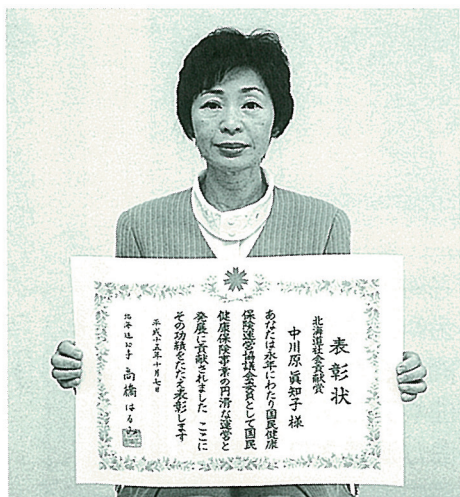 表彰状
北海道社会貢献賞
中川原眞知子様
あなたは永年にわたり国民健康
保険運営協議会委員として国民
健康保険事業の円滑な運営と
発展に貢献されました ここに
その功績をたたえ表彰します
平成十五年十月七日
北海道知事 高橋はるみ